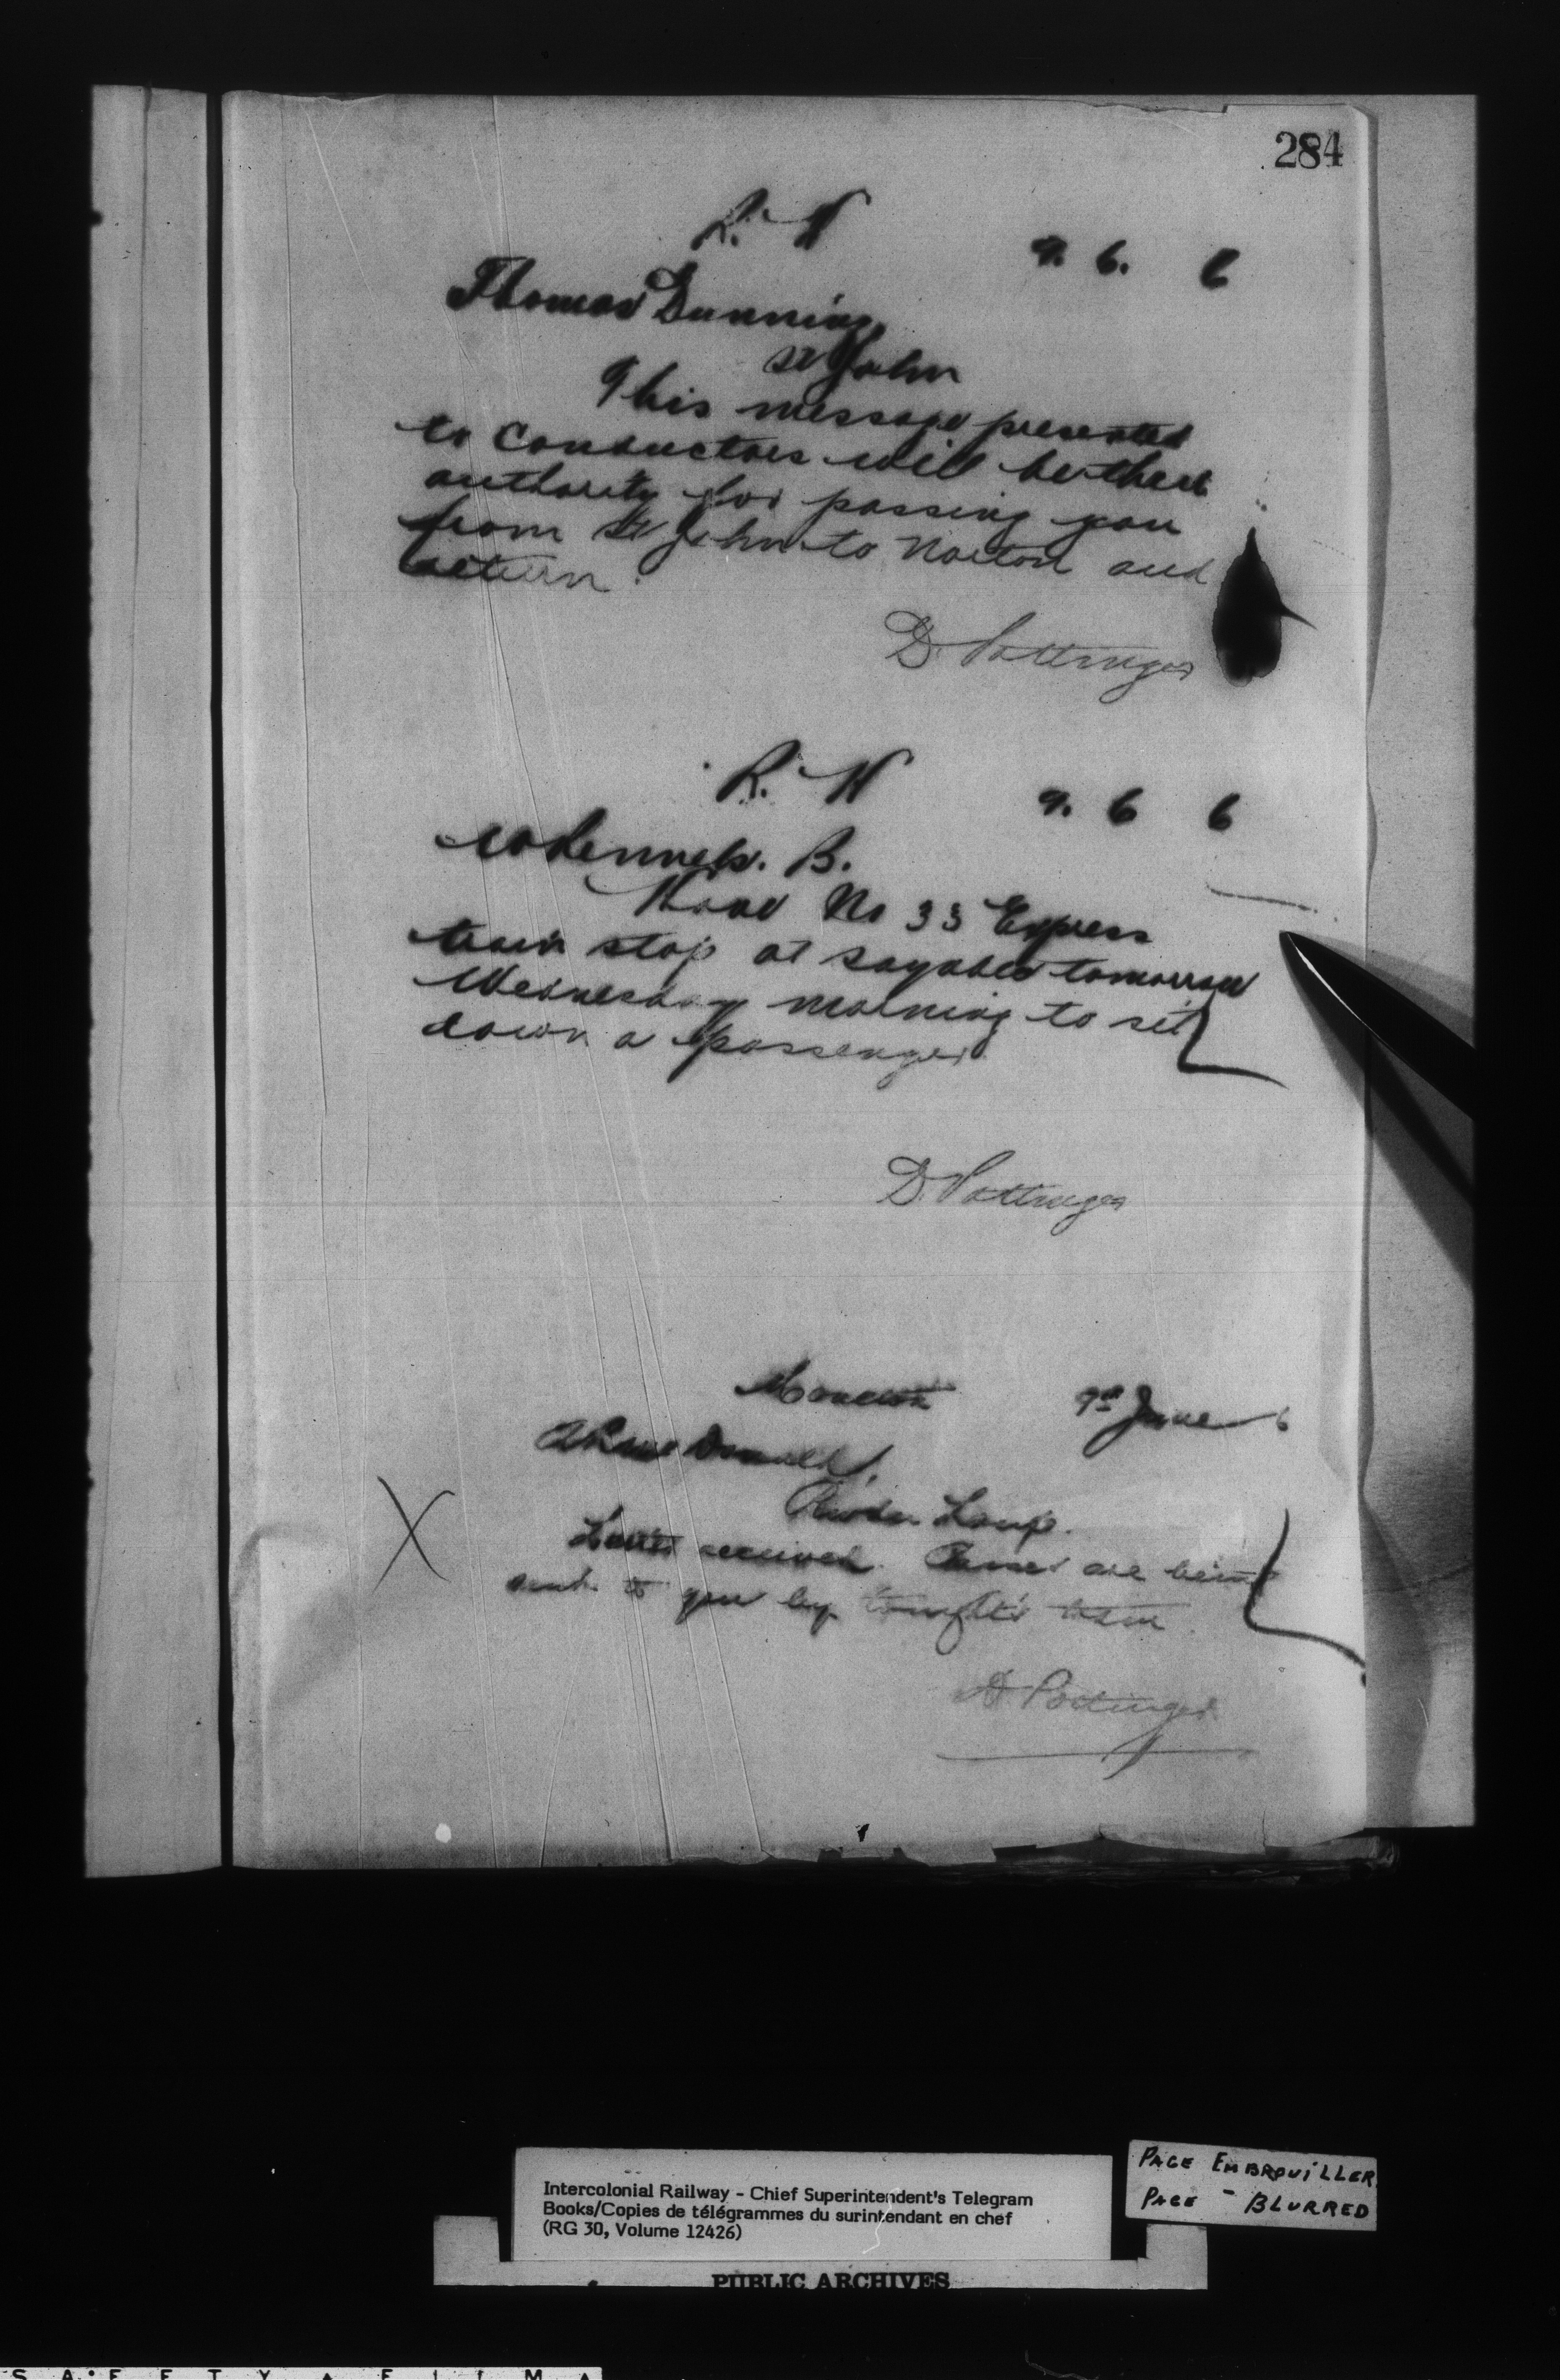 284
R. W 9. 6. 6
Thomas Dunning,
St John
This message presented
to Conductors will be their
authority for passing you
from St John to Norton and
return.
D. Pottinger
R. W 9. 6 6
B.
Have No 33 Express
train stop at Sayabec tomorrow
Wednesday morning to set
down a passenger.
D. Pottinger
Moncton 9th June 6
A R MacDonald,
River du Loup.
Letter received. are being
sent to you by tonight's train.
D. Pottinger
X
Intercolonial Railway - Chief Superintendent's Telegram
Books/Copies de télégrammes du surintendant en chef
(RG 30, Volume 12426)
PAGE EMBROUILLER
PAGE - BLURRED
PUBLIC ARCHIVES
SAFETY FILM